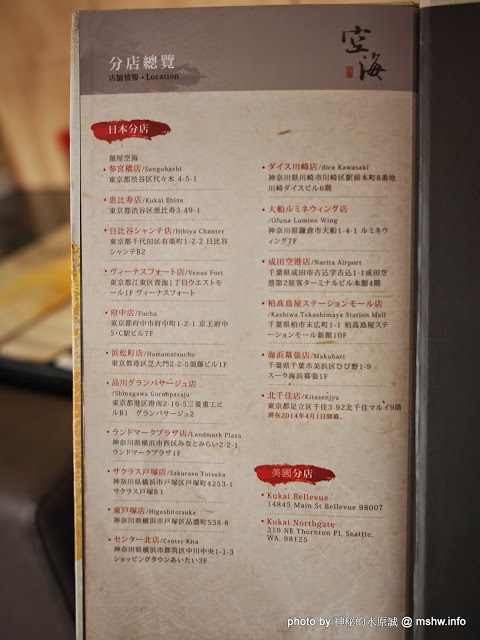 空海
分店總覽
店舖情報・Location
日本分店
麺屋空海
• 参宮橋店/Sangubashi
東京都渋谷区代々木 4-5-1
• 恵比寿店/Kukai Ebisu
東京都渋谷区恵比寿3-49-1
• 日比谷シャンテ店/Hibiya Chanter
東京都千代田区有楽町1-2-2 日比谷
シャンテB2
• ヴィーナスフォート店/Venus Fort
東京都江東区青海1丁目ウエストモ
ール1F ヴィーナスフォート
• 府中店/Fuchu
東京都府中市府中町1-2-1 京王府中
S・C駅ビル7F
• 浜松町店/Hamamatsucho
東京都港区芝大門2-2-5須藤ビル1F
• 品川グランパサージュ店
/Shinagawa Guranpasaju
東京都港区港南2-16-5三菱重工ビ
ルB1 グランパサージュ2
• ランドマークプラザ店/Landmark Plaza
神奈川県横浜市西区みなとみらい2-2-1
ランドマークプラザ1F
• サクラス戸塚店/Sakurasu Totsuka
神奈川県横浜市戸塚区戸塚町4253-1
サクラス戸塚B1
• 東戸塚店/Higashitotsuka
神奈川県横浜市戸塚区品濃町538-8
• センター北店/Center Kita
神奈川県横浜市都筑区中川中央1-1-3
ショッピングタウンあいたい3F
• ダイス川崎店/dice Kawasaki
神奈川県川崎市川崎区駅前本町8番地
川崎ダイスビル6階
• 大船ルミネウィング店
/Ofuna Lumine Wing
神奈川県鎌倉市大船1-4-1 ルミネウィ
ング7F
• 成田空港店/Narita Airport
千葉県成田市古込字古込1-1成田空
港第2旅客ターミナルビル本館4階
• 柏高島屋ステーションモール店
/Kashiwa Takashimaya Station Mall
千葉県柏市末広町1-1 柏高島屋ステ
ーションモール新館10F
• 海浜幕張店/Makuhari
千葉県千葉市美浜区ひび野1-9
スーク海浜幕張1F
• 北千住店/Kitasenjyu
東京都足立区千住3-92北千住マルイ9階
將在2014年4月1日開幕。
美國分店
• Kukai Bellevue
14845 Main St Bellevue 98007
• Kukai Northgate
319 NE Thornton Pl, Seattle,
WA, 98125
photo by 神秘的水原誠 @ mshw.info